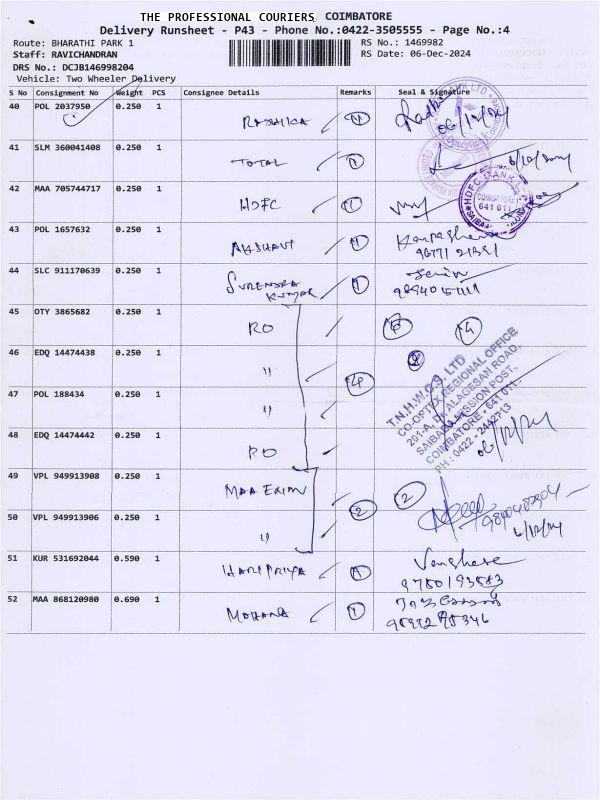 THE PROFESSIONAL COURIERS, COIMBATORE
Delivery Runsheet - P43 - Phone No.:0422-3505555 - Page No.:4
Route: BHARATHI PARK 1
RS No.: 1469982
Staff: RAVICHANDRAN
RS Date: 06-Dec-2024
DRS No.: DCJB146998204
Vehicle: Two Wheeler Delivery
S No Consignment No Weight PCS Consignee Details Remarks Seal & Signature
40 POL 2037950 0.250 1 RADHIKA 1
06/12/24
41 SLM 360041408 0.250 1 TOTAL 1 6/12/2024
42 MAA 705744717 0.250 1 HDFC 1
HDFC BANK
COIMBATORE
641 011
43 POL 1657632 0.250 1 1
44 SLC 911170639 0.250 1 SURENDRA KUMAR 1
45 OTY 3865682 0.250 1 RO
46 EDQ 14474438 0.250 1 "
4
47 POL 188434 0.250 1 "
48 EDQ 14474442 0.250 1 RO
T.N.H.W.C.S. LTD
CO-OPTEX REGIONAL OFFICE
201-A, D.ALAGESAN ROAD,
SAIBABA MISSION POST,
COIMBATORE - 641 011.
PH : 0422 - 2442713
06/12/24
49 VPL 949913908 0.250 1 MAA 2 2
50 VPL 949913906 0.250 1 "
6/12/24
51 KUR 531692044 0.590 1 HARIPRIYA 1
52 MAA 868120980 0.690 1 MOHANA 1